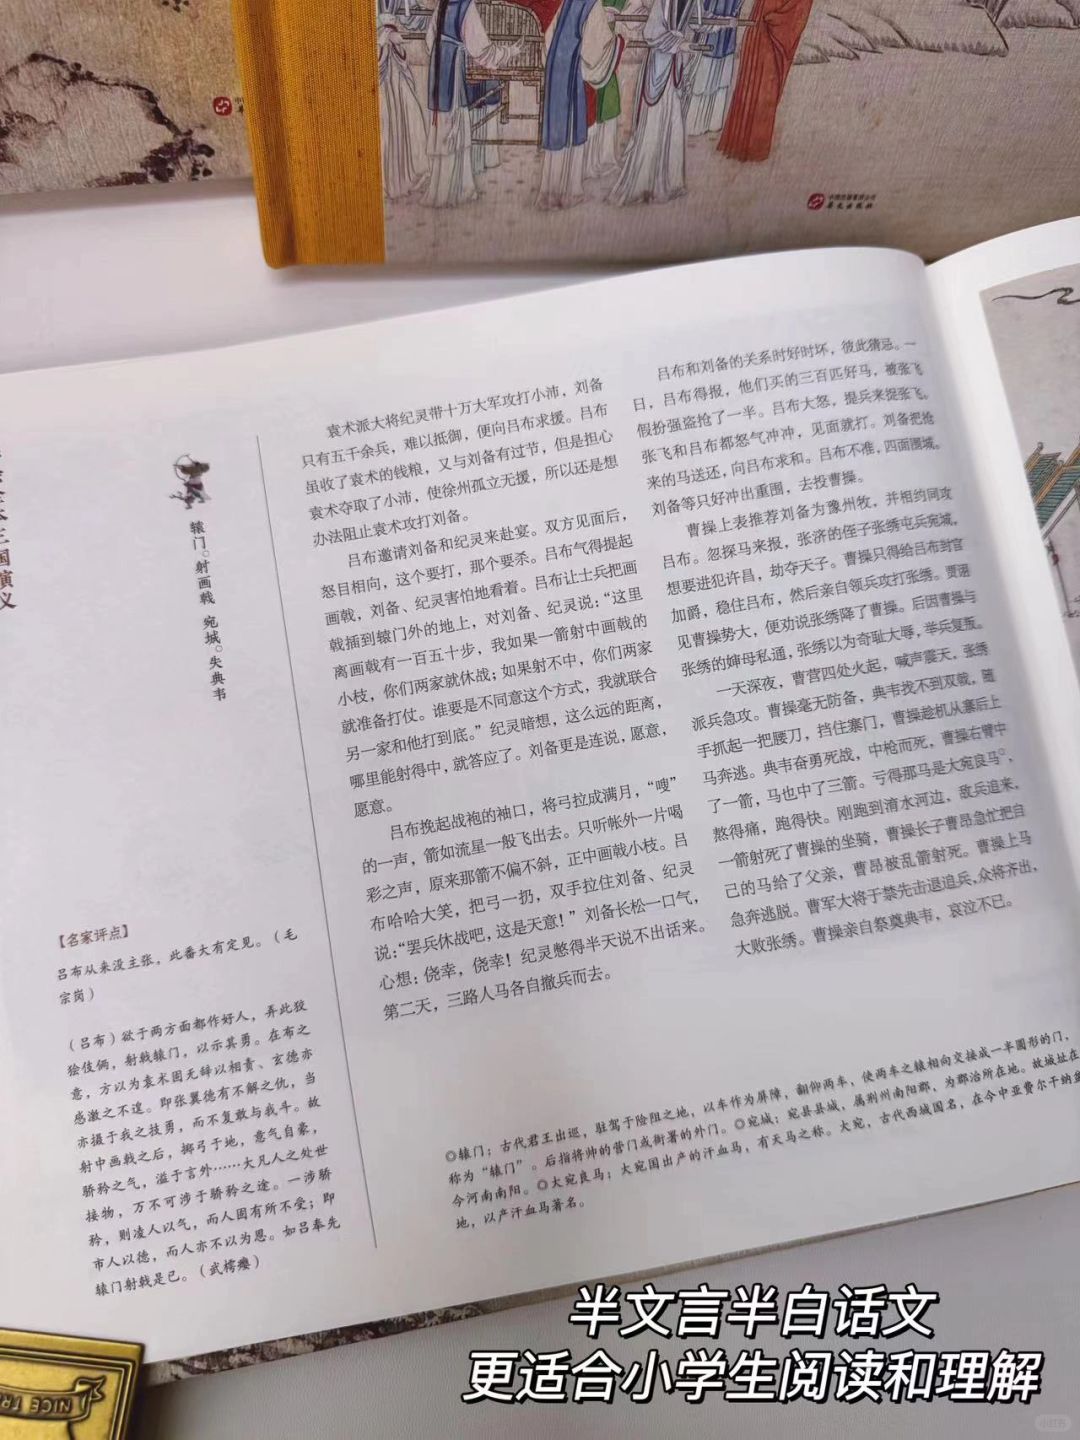 中国出版集团公司
华文出版社
三国演义
辕门◎射画戟 宛城◎失典韦
袁术派大将纪灵带十万大军攻打小沛，刘备
只有五千余兵，难以抵御，便向吕布求援。吕布
虽收了袁术的钱粮，又与刘备有过节，但是担心
袁术夺取了小沛，使徐州孤立无援，所以还是想
办法阻止袁术攻打刘备。
吕布邀请刘备和纪灵来赴宴。双方见面后，
怒目相向，这个要打，那个要杀。吕布气得提起
画戟，刘备、纪灵害怕地看着。吕布让士兵把画
戟插到辕门外的地上，对刘备、纪灵说：“这里
离画戟有一百五十步，我如果一箭射中画戟的
小枝，你们两家就休战；如果射不中，你们两家
就准备打仗。谁要是不同意这个方式，我就联合
另一家和他打到底。”纪灵暗想，这么远的距离，
哪里能射得中，就答应了。刘备更是连说，愿意，
愿意。
吕布挽起战袍的袖口，将弓拉成满月，“嗖”
的一声，箭如流星一般飞出去。只听帐外一片喝
彩之声，原来那箭不偏不斜，正中画戟小枝。吕
布哈哈大笑，把弓一扔，双手拉住刘备、纪灵
说：“罢兵休战吧，这是天意！”刘备长松一口气，
心想：侥幸，侥幸！纪灵憋得半天说不出话来。
第二天，三路人马各自撤兵而去。
吕布和刘备的关系时好时坏，彼此猜忌。一
日，吕布得报，他们买的三百匹好马，被张飞
假扮强盗抢了一半。吕布大怒，提兵来捉张飞。
张飞和吕布都怒气冲冲，见面就打。刘备把抢
来的马送还，向吕布求和。吕布不准，四面围城。
刘备等只好冲出重围，去投曹操。
曹操上表推荐刘备为豫州牧，并相约同攻
吕布。忽探马来报，张济的侄子张绣屯兵宛城，
想要进犯许昌，劫夺天子。曹操只得给吕布封官
加爵，稳住吕布，然后亲自领兵攻打张绣。贾诩
见曹操势大，便劝说张绣降了曹操。后因曹操与
张绣的婶母私通，张绣以为奇耻大辱，举兵复叛。
一天深夜，曹营四处火起，喊声震天，张绣
派兵急攻。曹操毫无防备，典韦找不到双戟，随
手抓起一把腰刀，挡住寨门，曹操趁机从寨后上
马奔逃。典韦奋勇死战，中枪而死，曹操右臂中
了一箭，马也中了三箭。亏得那马是大宛良马◎，
熬得痛，跑得快。刚跑到淯水河边，敌兵追来，
一箭射死了曹操的坐骑，曹操长子曹昂急忙把自
己的马给了父亲，曹昂被乱箭射死。曹操上马
急奔逃脱。曹军大将于禁先击退追兵，众将齐出，
大败张绣。曹操亲自祭奠典韦，哀泣不已。
【名家评点】
吕布从来没主张，此番大有定见。（毛
宗岗）
（吕布）欲于两方面都作好人，弄此狡
狯伎俩，射戟辕门，以示其勇。在布之
意，方以为袁术固无辞以相责、玄德亦
感激之不遑。即张翼德有不解之仇，当
亦摄于我之技勇，而不复敢与我斗。故
射中画戟之后，掷弓于地，意气自豪，
骄矜之气，溢于言外……大凡人之处世
接物，万不可涉于骄矜之途。一涉骄
矜，则凌人以气，而人固有所不受；即
市人以德，而人亦不以为恩。如吕奉先
辕门射戟是已。（武樗瘿）
◎辕门：古代君王出巡，驻驾于险阻之地，以车作为屏障，翻仰两车，使两车之辕相向交接成一半圆形的门，
称为“辕门”。后指将帅的营门或衙署的外门。◎宛城：宛县县城，属荆州南阳郡，为郡治所在地。故城址在
今河南南阳。◎大宛良马：大宛国出产的汗血马，有天马之称。大宛，古代西域国名，在今中亚费尔干纳盆
地，以产汗血马著名。
半文言半白话文
更适合小学生阅读和理解
NICE TRI
小红书